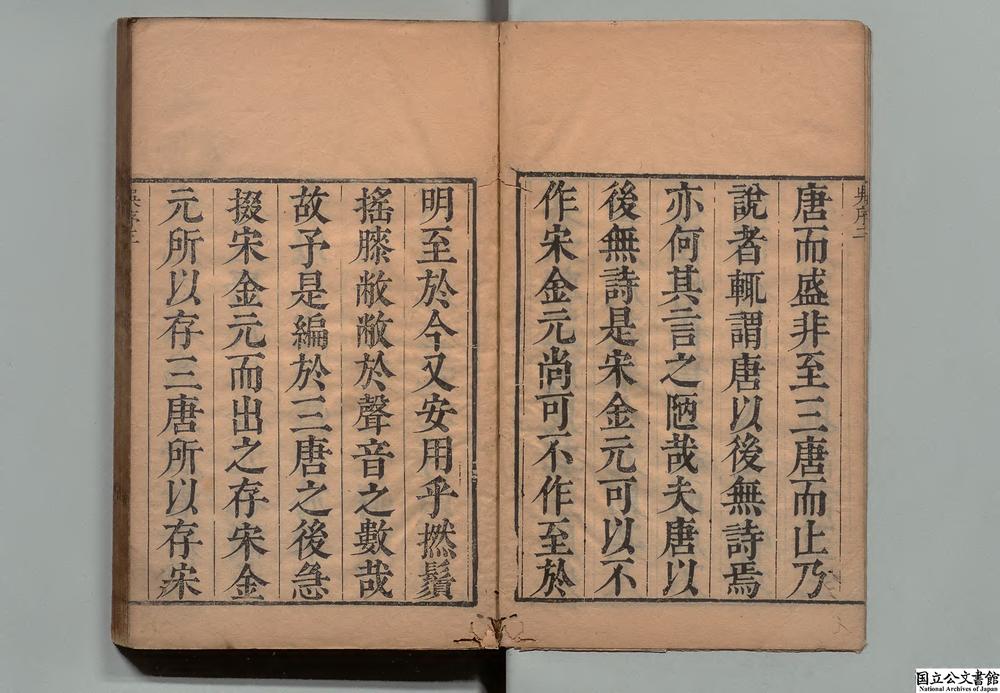 唐而盛非至三唐而止乃
說者輒謂唐以後無詩焉
亦何其言之陋哉夫唐以
後無詩是宋金元可以不
作宋金元尚可不作至於
明至於今又安用乎撚鬚
搖膝敝敝於聲音之數哉
故予是編於三唐之後急
掇宋金元而出之存宋金
元所以存三唐所以存宋
国立公文書館
National Archives of Japan